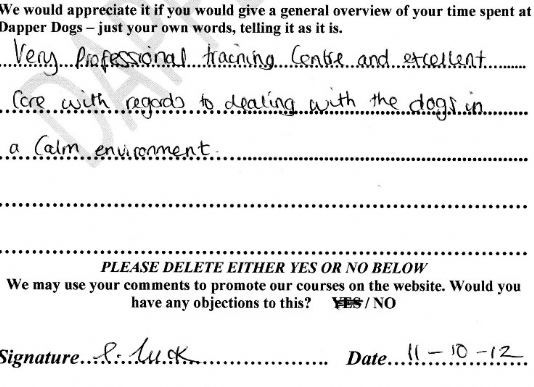 We would appreciate it if you would give a general overview of your time spent at
Dapper Dogs – just your own words, telling it as it is.
Very Professional training Centre and excellent
Care with regards to dealing with the dogs in
a Calm environment.
PLEASE DELETE EITHER YES OR NO BELOW
We may use your comments to promote our courses on the website. Would you
have any objections to this? YES / NO
Signature... P. Luck ... Date... 11-10-12